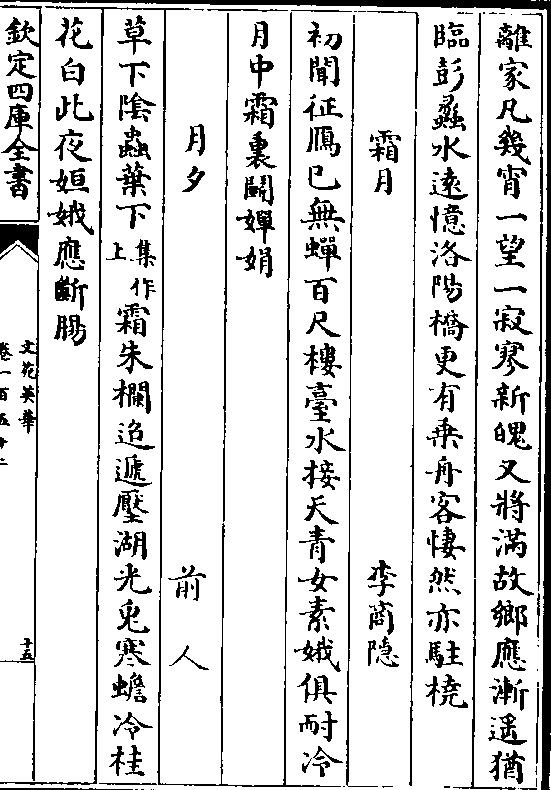 離家凡幾宵一望一寂寥新魄又將滿故鄉應漸遥猶
臨彭蠡水遠憶洛陽橋更有乗舟客悽然亦駐橈
霜月 李商隠
初聞征鴈已無蟬百尺樓臺水接天青女素娥俱耐冷
月中霜裏鬬嬋娟
月夕 前人
草下隂蟲葉下集作上霜朱欄迢遞壓湖光兎寒蟾冷桂
花白此夜姮娥應斷腸
欽定四庫全書
文苑英華
卷一百五十二
十五